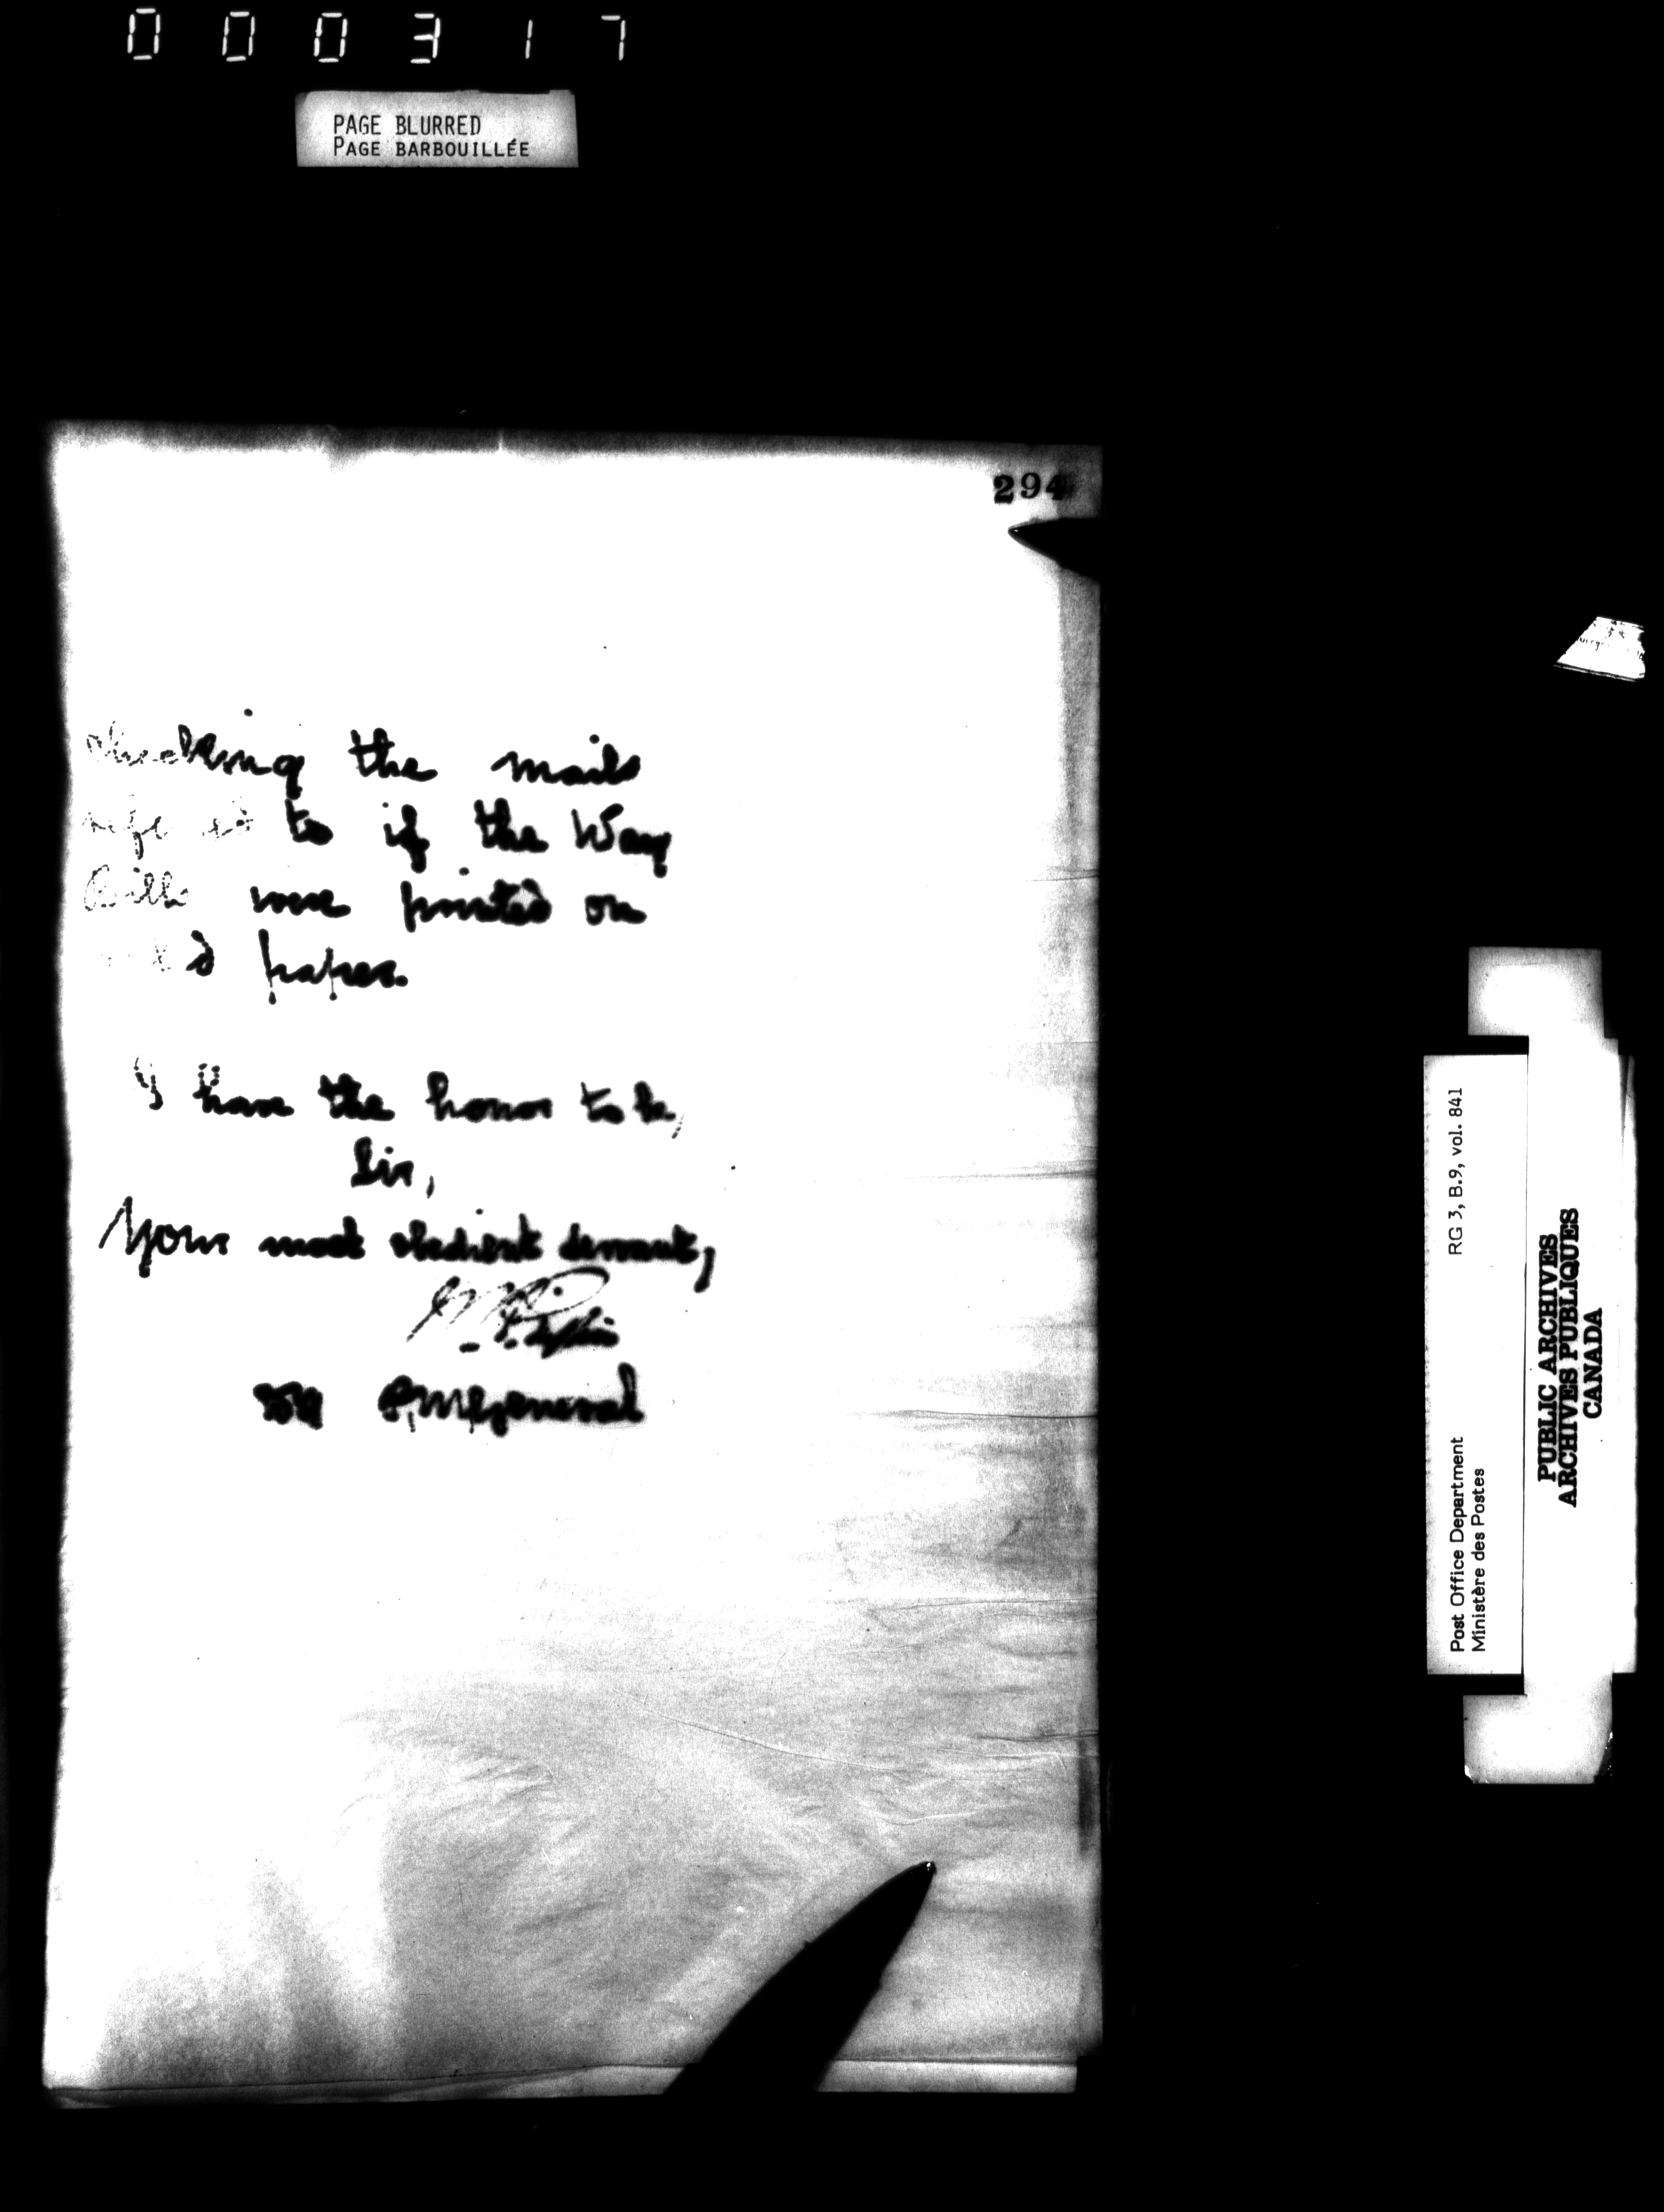 000317
PAGE BLURRED
PAGE BARBOUILLÉE
294
checking the mails
to if the Way
Bills were printed on
paper.
I have the honor to be,
Sir,
Your most obedient servant,
for P.M. General
RG 3, B.9, vol. 841
Post Office Department
Ministère des Postes
PUBLIC ARCHIVES
ARCHIVES PUBLIQUES
CANADA